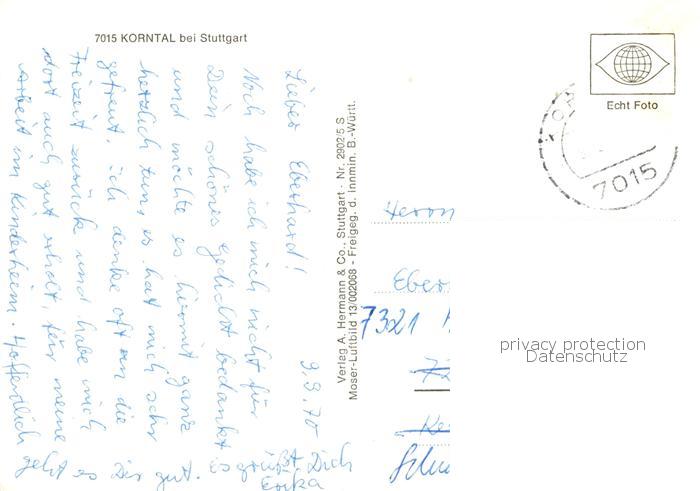 7015 KORNTAL bei Stuttgart
Echt Foto
7015
Lieber Eberhard!
9.9.70
Noch habe ich mich nicht für
Dein schönes Gedicht bedankt
und möchte es hiermit ganz
herzlich tun, es hat mich sehr
gefreut. ich denke oft an die
Freizeit zurück und habe mich
dort auch gut erholt, für meine
Arbeit im Kinderheim. Hoffentlich
geht es Dir gut. Es grüßt Dich
Erika
Verlag A. Hermann & Co., Stuttgart · Nr. 2902/5 S
Moser-Luftbild 13/002068 - Freigeg. d. Innmin. B.-Württ.
Herrn
Eber
7321
privacy protection
Datenschutz